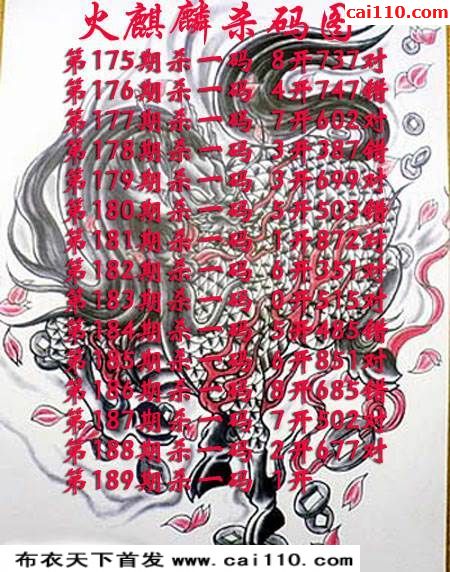 cai110.com
火麒麟杀码图
第175期杀一码 8开737对
第176期杀一码 4开747错
第177期杀一码 7开602对
第178期杀一码 3开387错
第179期杀一码 3开699对
第180期杀一码 5开503错
第181期杀一码 1开872对
第182期杀一码 6开351对
第183期杀一码 0开515对
第184期杀一码 5开485错
第185期杀一码 6开851对
第186期杀一码 8开685错
第187期杀一码 7开502对
第188期杀一码 2开677对
第189期杀一码 1开
布衣天下首发 www.cai110.com